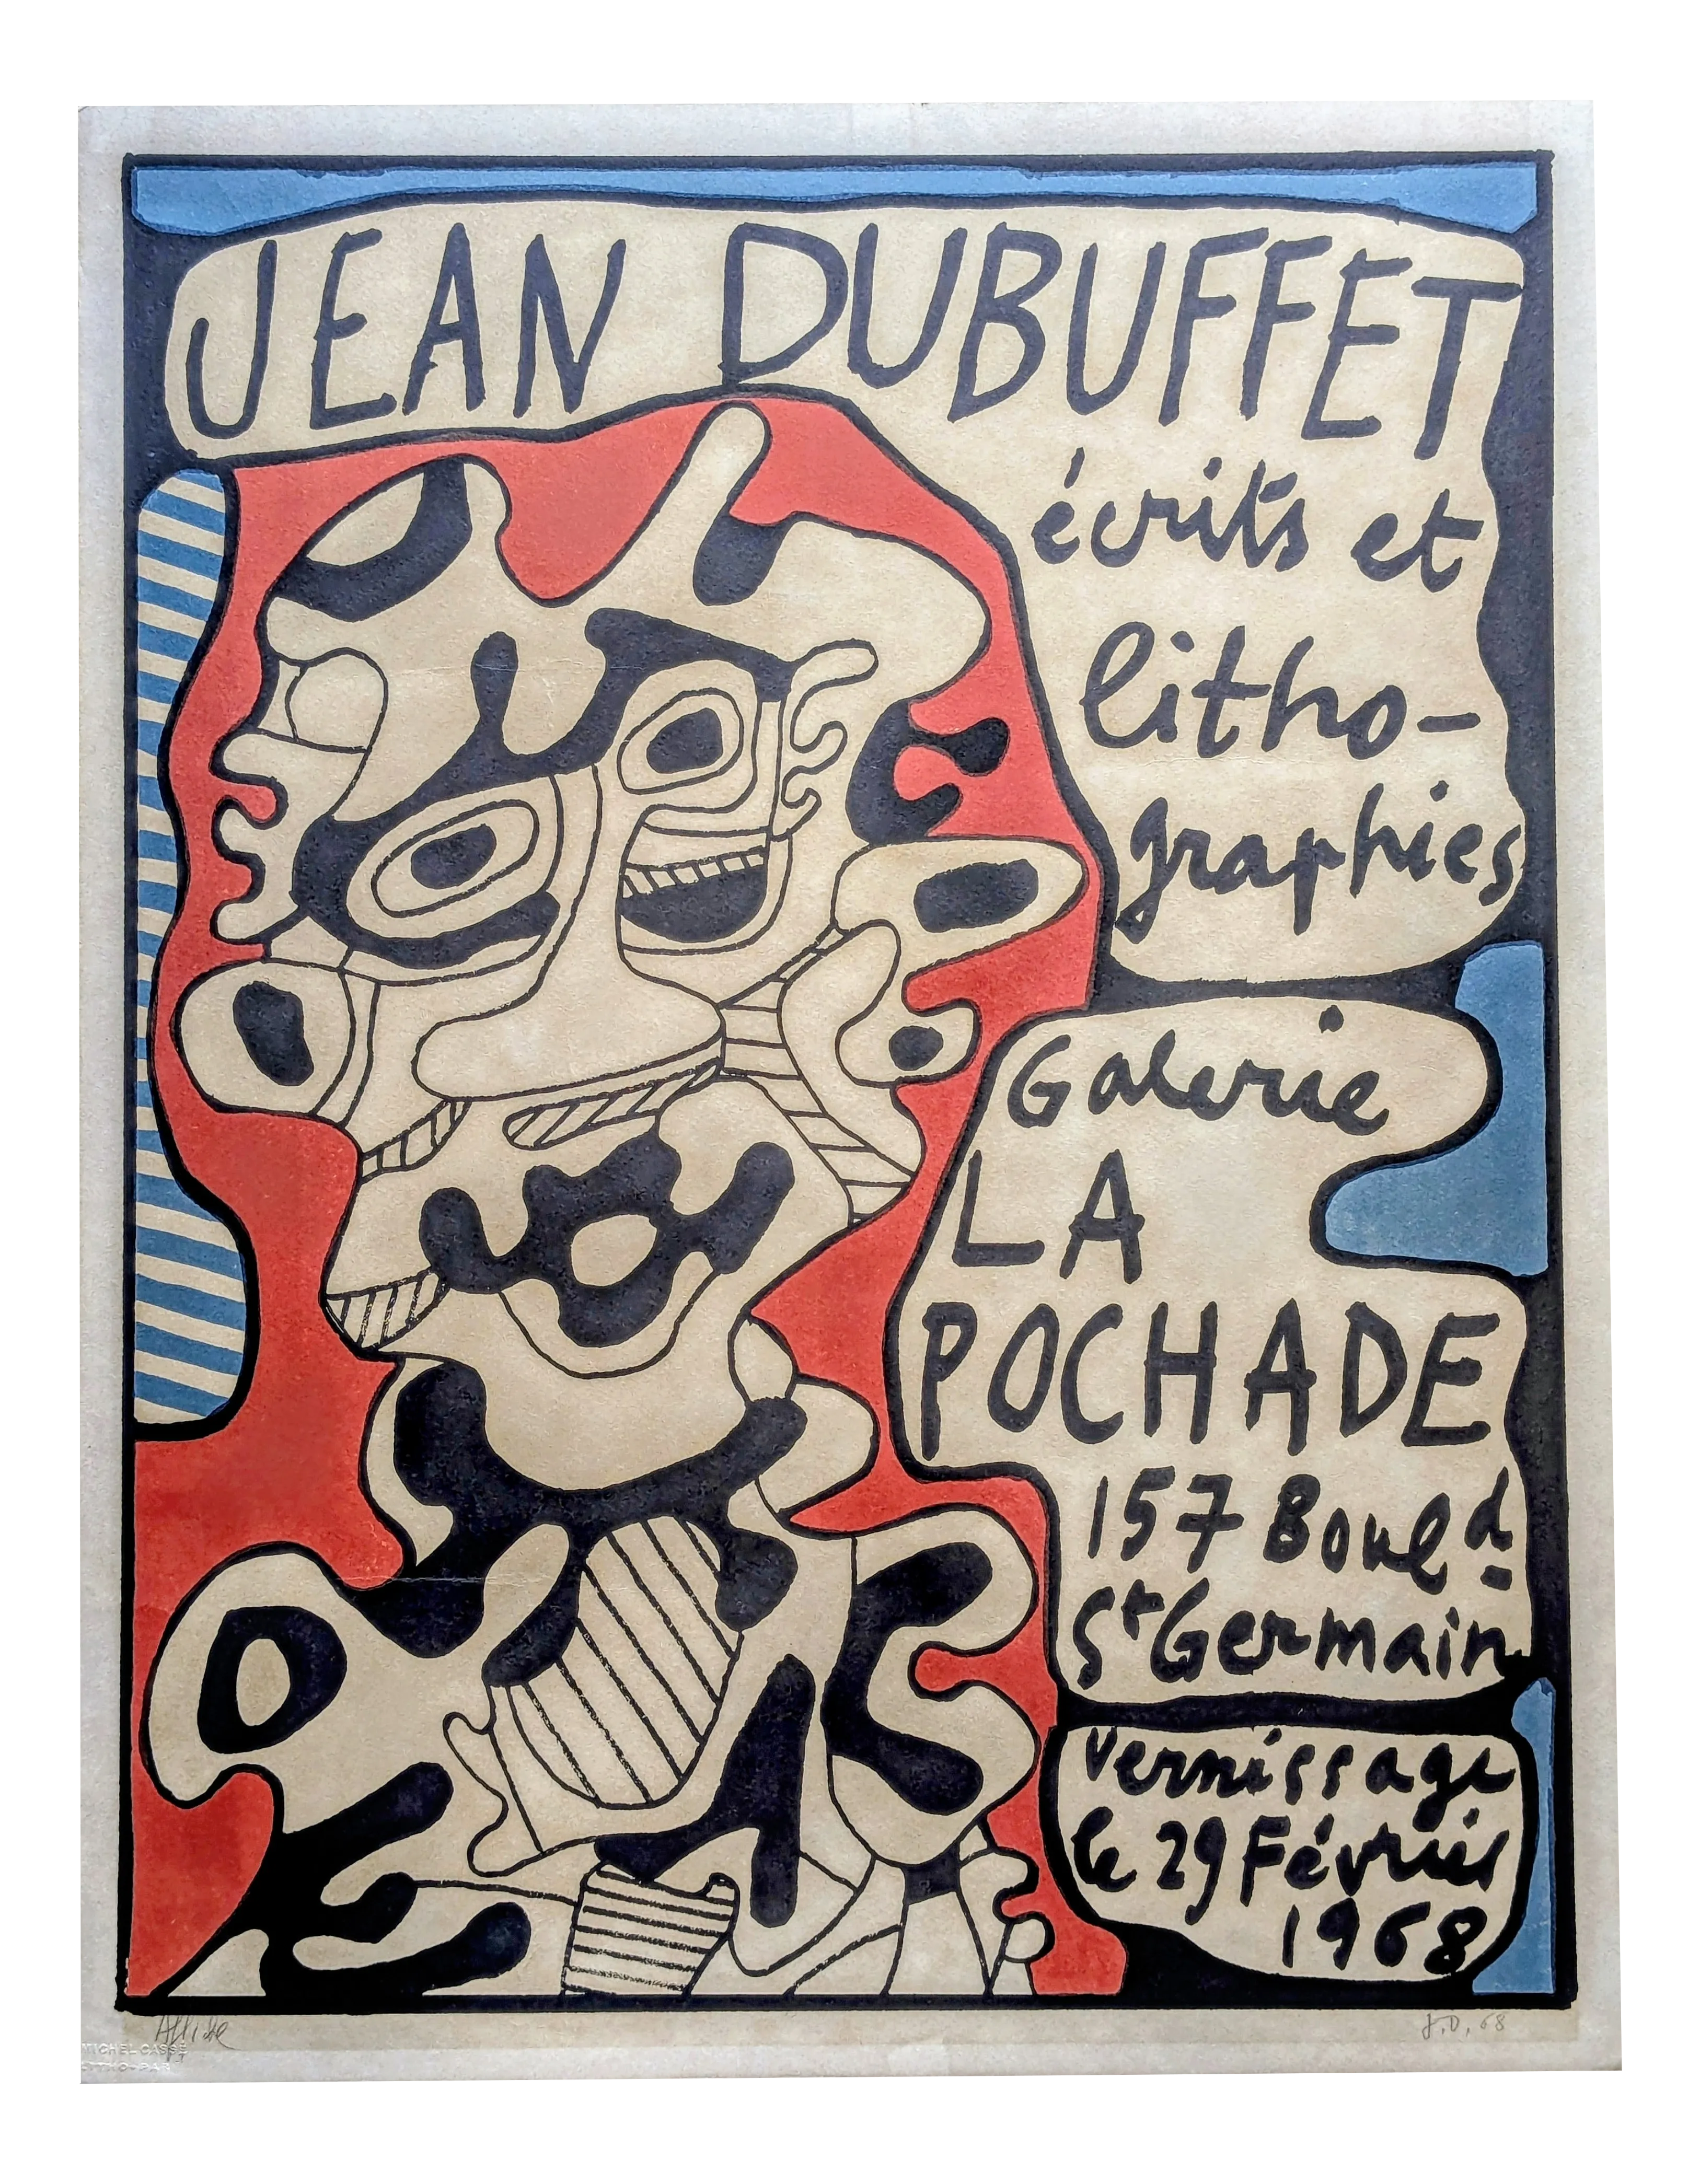 JEAN DUBUFFET
écrits et
litho-
graphies
Galerie
LA
POCHADE
157 Bould
St Germain
vernissage
le 29 Février
1968
Affiche
J.D. 68
MICHEL CASSÉ
LITHO-PAR